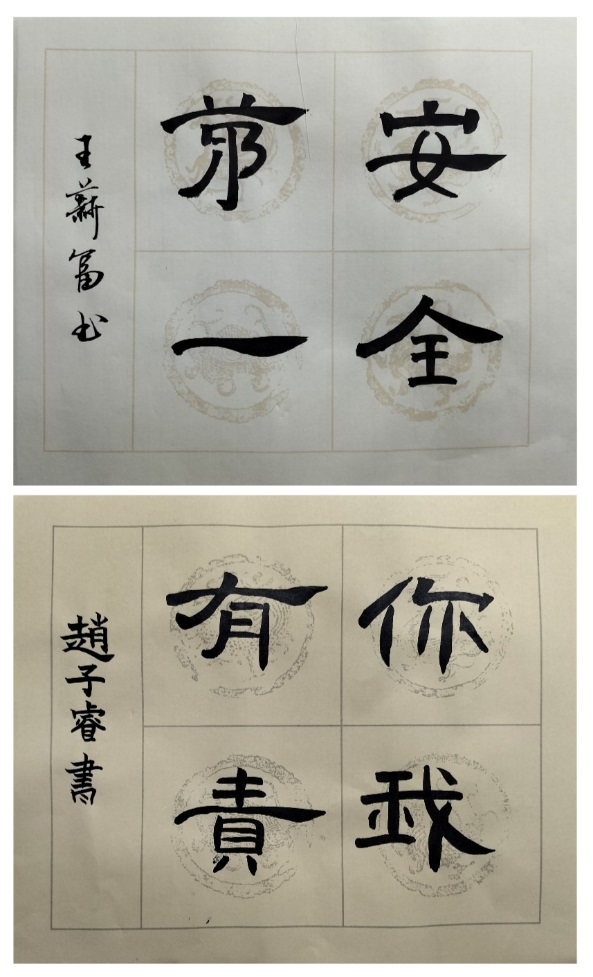 安全
第一
王薪富书
你我
有責
趙子睿書